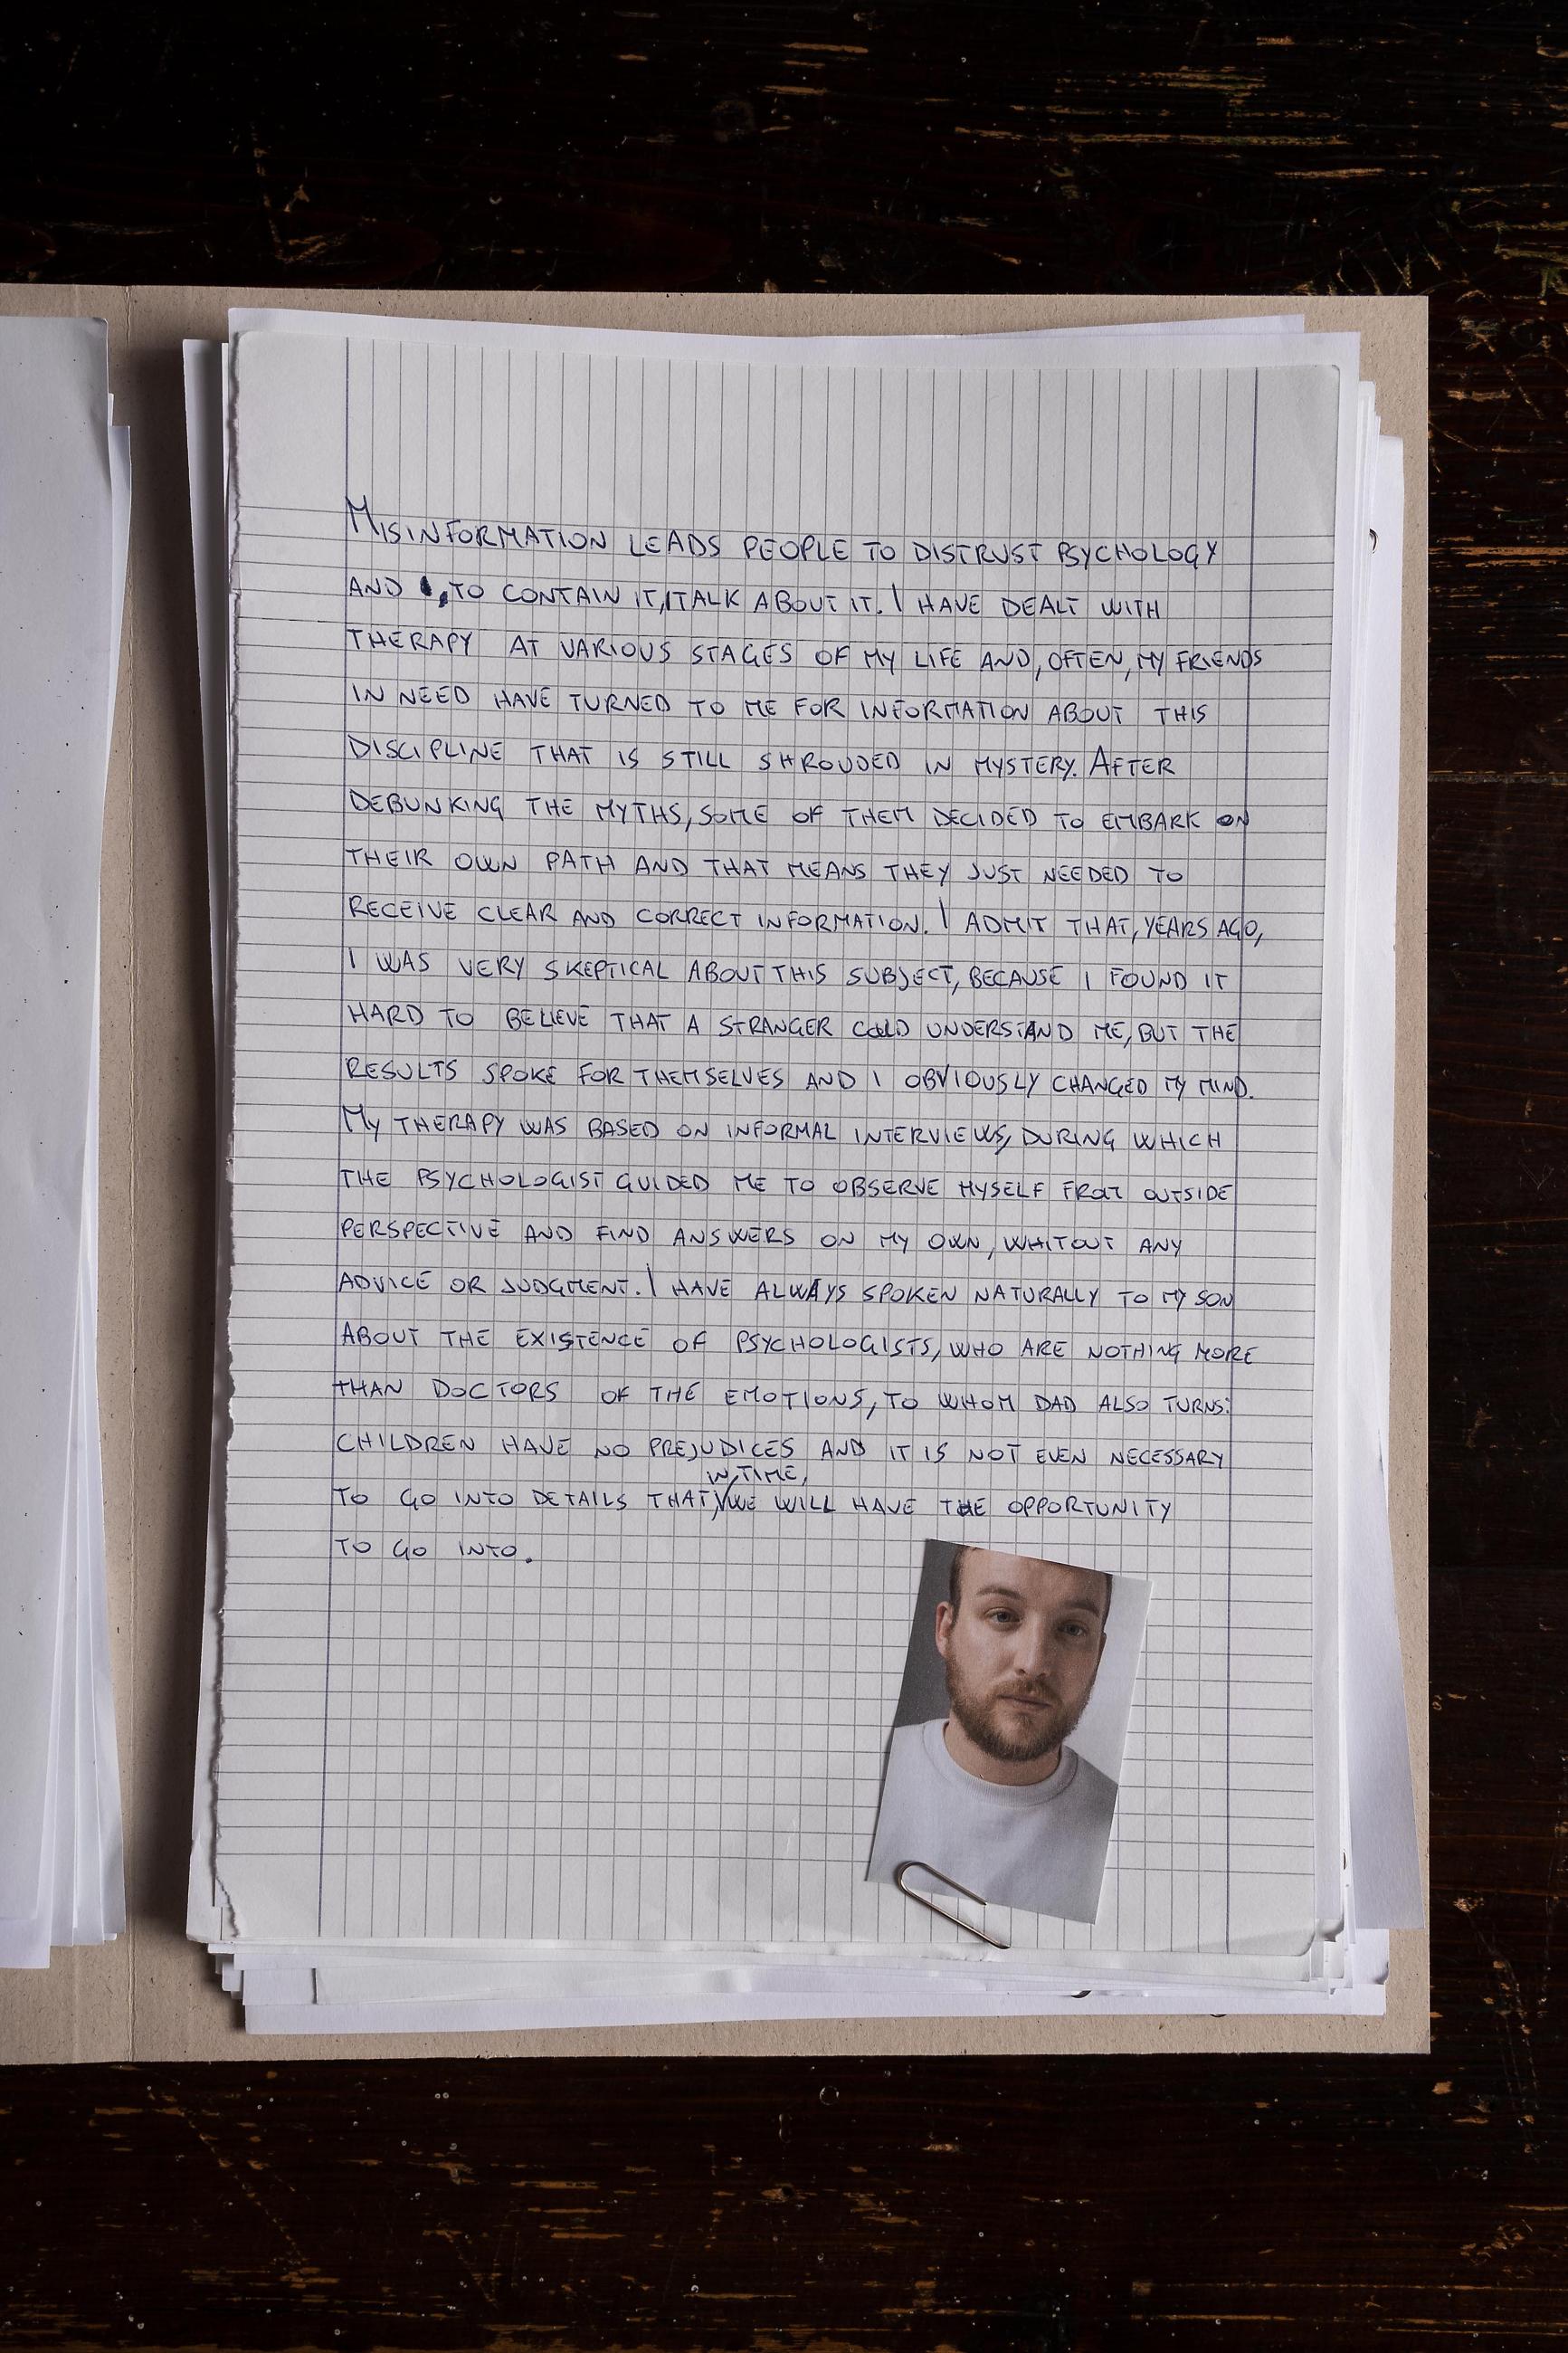 MISINFORMATION LEADS PEOPLE TO DISTRUST PSYCHOLOGY
AND , TO CONTAIN IT, I TALK ABOUT IT. I HAVE DEALT WITH
THERAPY AT VARIOUS STAGES OF MY LIFE AND, OFTEN, MY FRIENDS
IN NEED HAVE TURNED TO ME FOR INFORMATION ABOUT THIS
DISCIPLINE THAT IS STILL SHROUDED IN MYSTERY. AFTER
DEBUNKING THE MYTHS, SOME OF THEM DECIDED TO EMBARK ON
THEIR OWN PATH AND THAT MEANS THEY JUST NEEDED TO
RECEIVE CLEAR AND CORRECT INFORMATION. I ADMIT THAT, YEARS AGO,
I WAS VERY SKEPTICAL ABOUT THIS SUBJECT, BECAUSE I FOUND IT
HARD TO BELIEVE THAT A STRANGER COULD UNDERSTAND ME, BUT THE
RESULTS SPOKE FOR THEMSELVES AND I OBVIOUSLY CHANGED MY MIND.
MY THERAPY WAS BASED ON INFORMAL INTERVIEWS, DURING WHICH
THE PSYCHOLOGIST GUIDED ME TO OBSERVE MYSELF FROM OUTSIDE
PERSPECTIVE AND FIND ANSWERS ON MY OWN, WHITOUT ANY
ADVICE OR JUDGMENT. I HAVE ALWAYS SPOKEN NATURALLY TO MY SON
ABOUT THE EXISTENCE OF PSYCHOLOGISTS, WHO ARE NOTHING MORE
THAN DOCTORS OF THE EMOTIONS, TO WHOM DAD ALSO TURNS:
CHILDREN HAVE NO PREJUDICES AND IT IS NOT EVEN NECESSARY
TO GO INTO DETAILS THAT, IN TIME, WE WILL HAVE THE OPPORTUNITY
TO GO INTO.